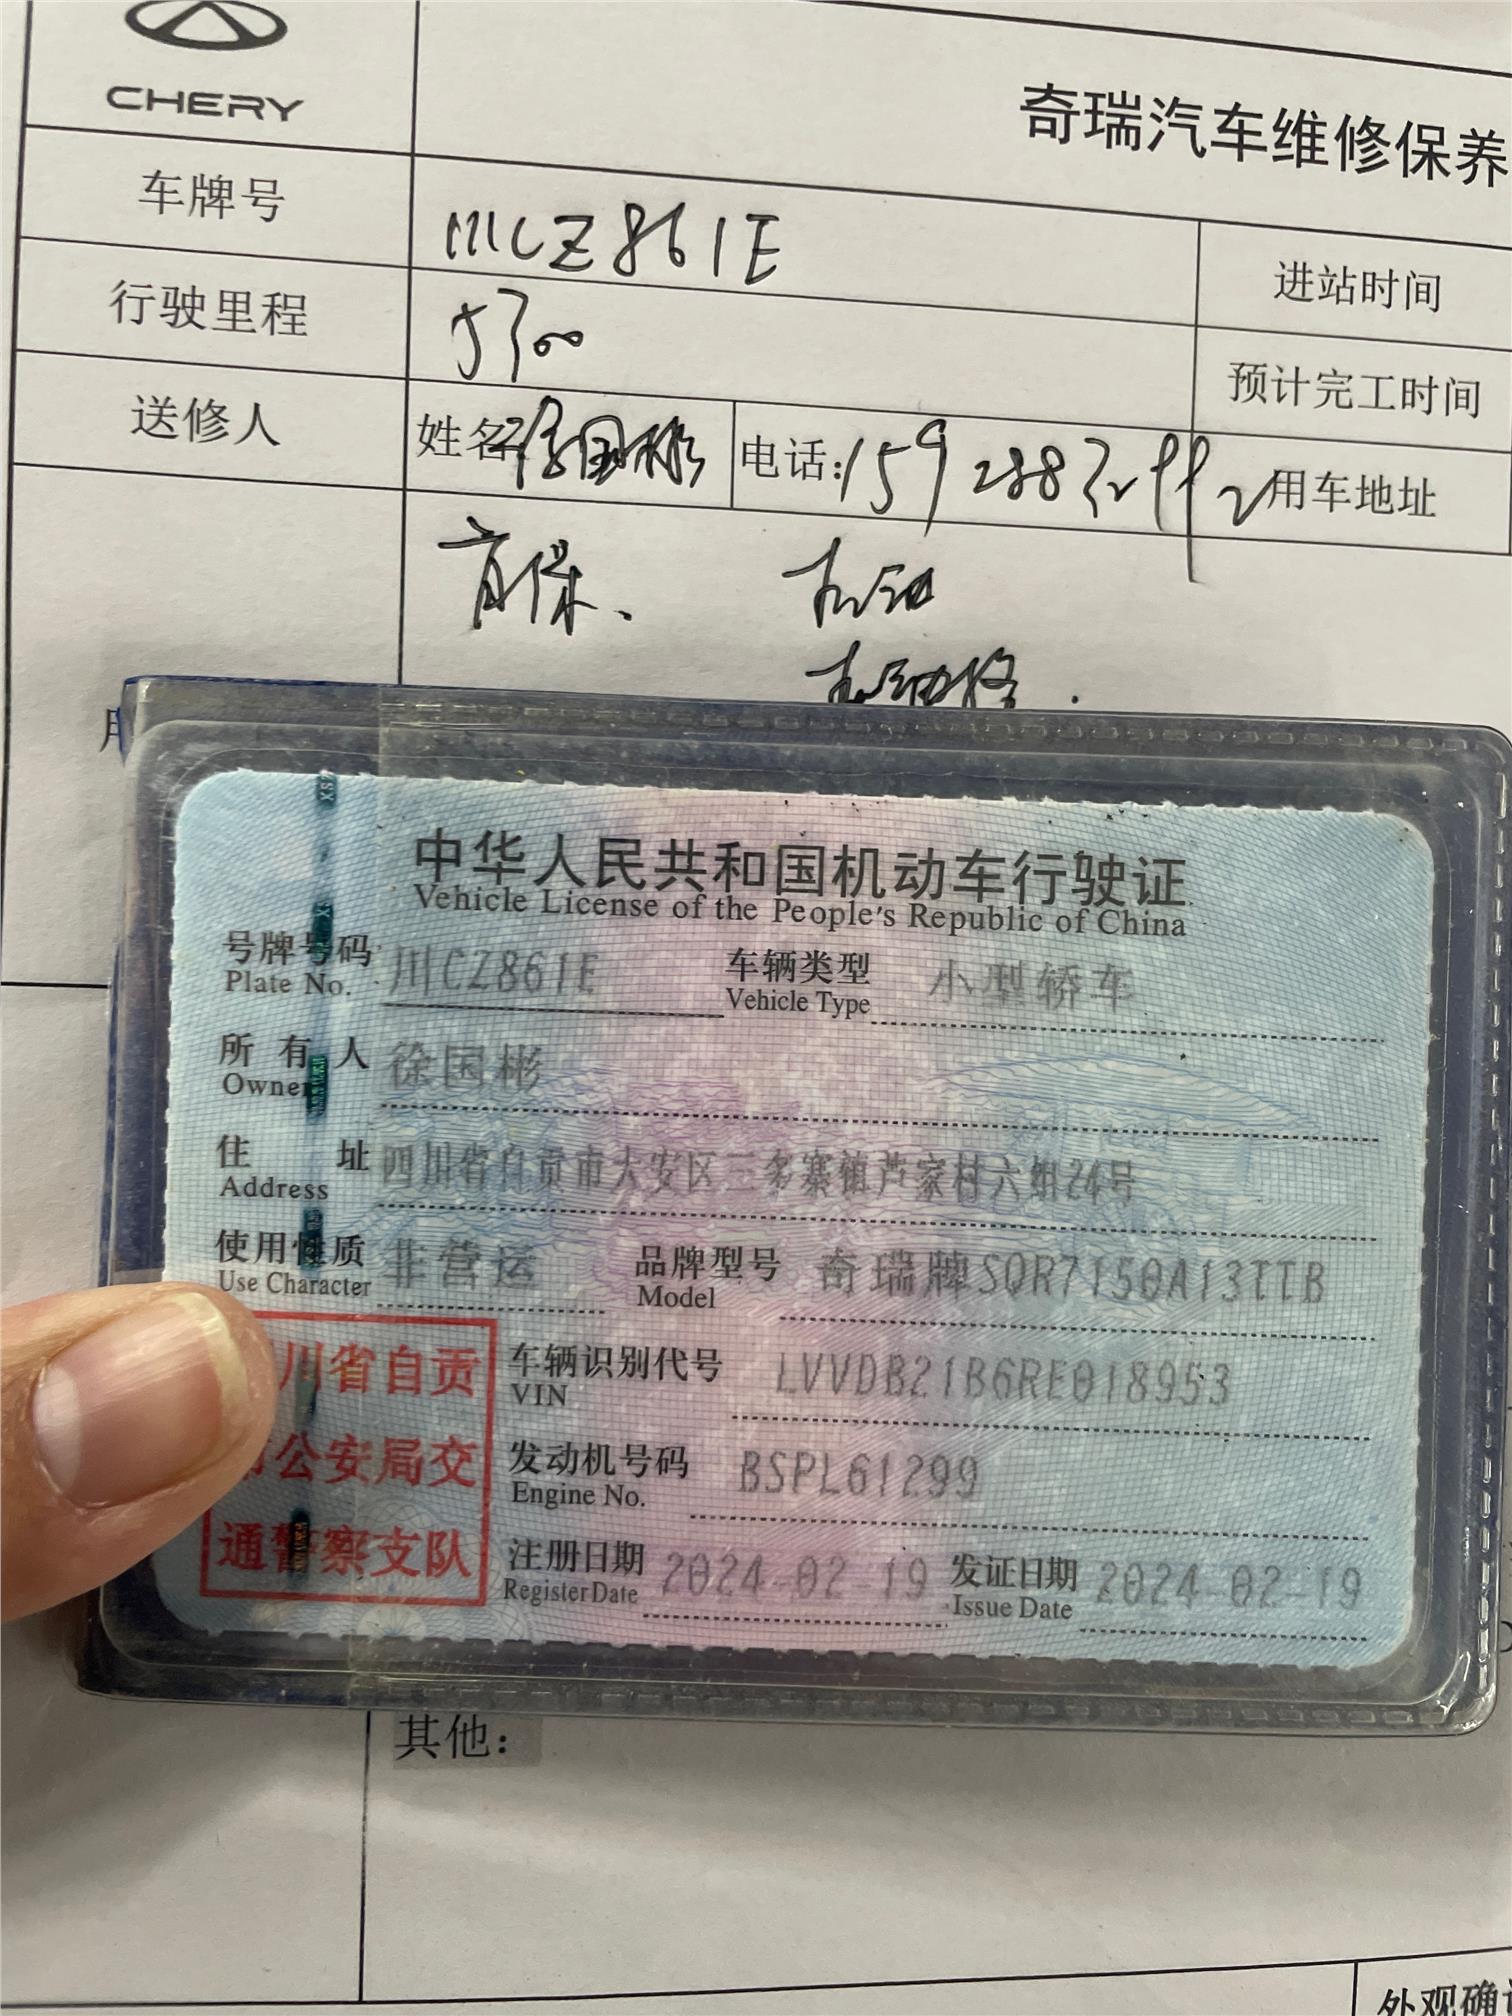 CHERY
奇瑞汽车维修保养
车牌号 川CZ861E 进站时间
行驶里程 5300 预计完工时间
送修人 姓名:徐国彬 电话:15928832992 用车地址
首保、
中华人民共和国机动车行驶证
Vehicle License of the People's Republic of China
号牌号码 川CZ861E 车辆类型 小型轿车
Plate No. Vehicle Type
所有人 徐国彬
Owner
住址 四川省自贡市大安区三多寨镇芦家村六组24号
Address
使用性质 非营运 品牌型号 奇瑞牌SQR7150A13TTB
Use Character Model
川省自贡
公安局交
通警察支队
车辆识别代号 LVVDB21B6RE018953
VIN
发动机号码 BSPL61299
Engine No.
注册日期 2024-02-19 发证日期 2024-02-19
Register Date Issue Date
其他:
外观确